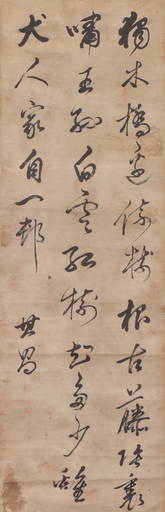 獨木橋邊倚樹根古藤陰裏
嘯王孫白雲紅樹知多少雞
犬人家自一邨 其昌